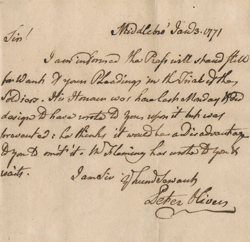 Middleboro' Jan 3. 1771
Sir!
I am informed the Press will stand still
for Want of your Pleadings in the Trial of the
Soldiers. It is
design'd to have wrote to you upon it but was
prevented: he thinks it would be a disadvantage
to you to omit it. Mr Fleming has wrote to you &
waits.
I am Sir Yr humble Servant
Peter Oliver